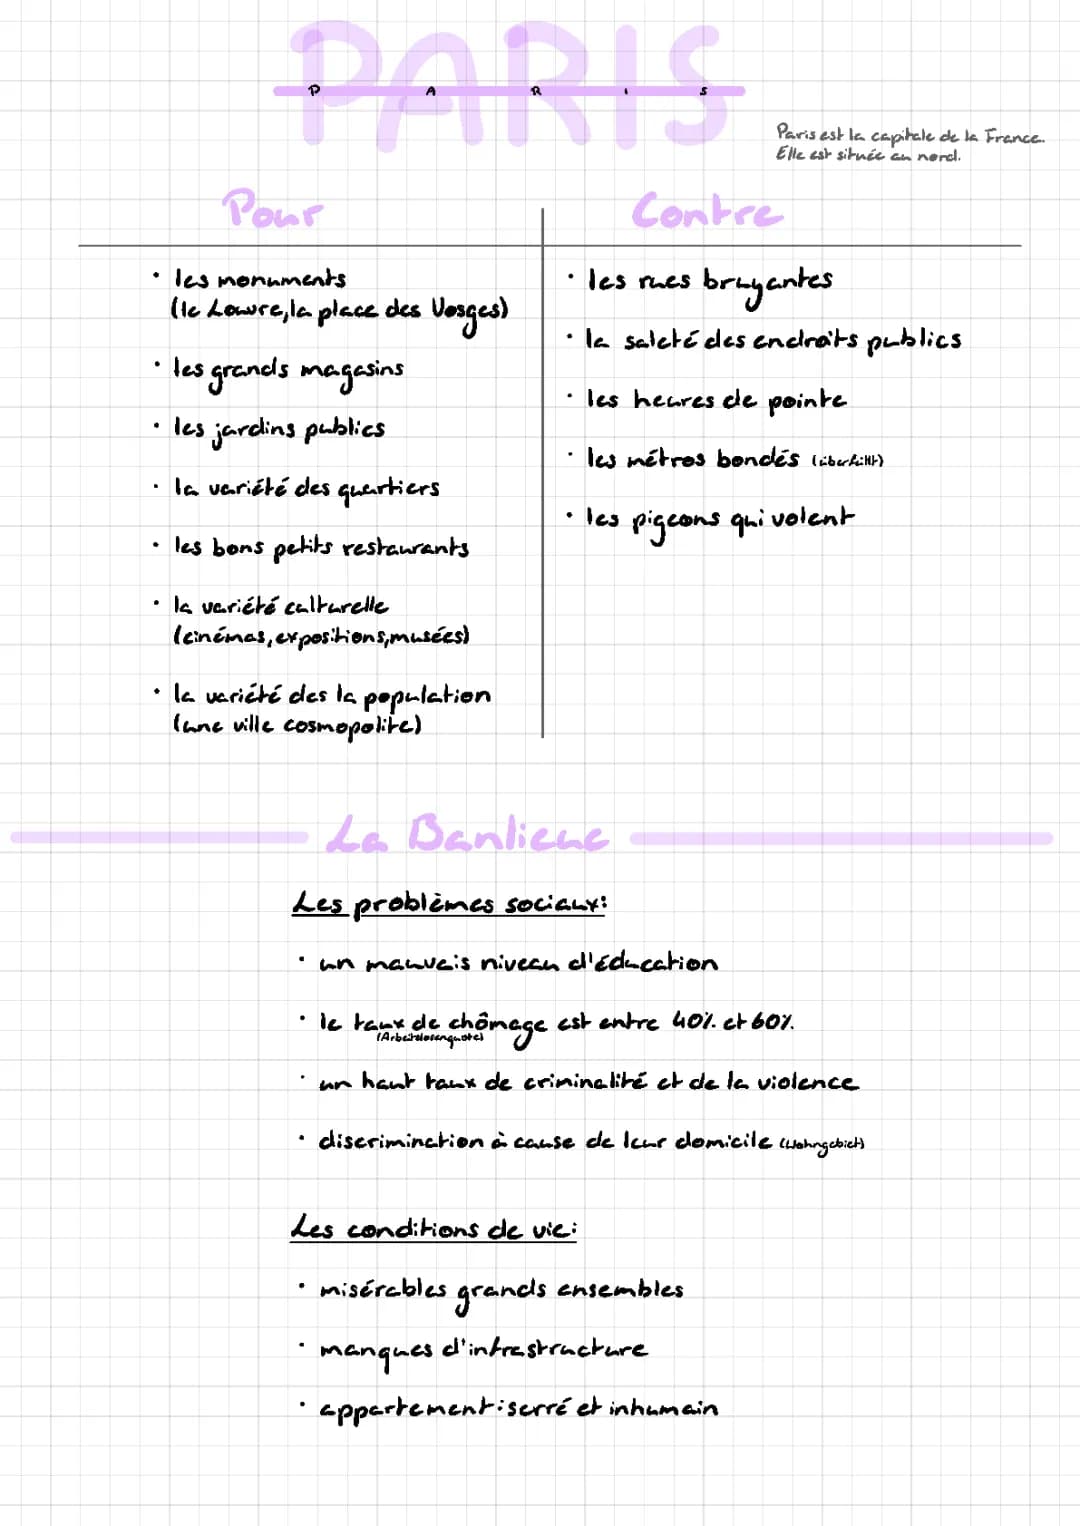 PARIS
P A R I S
Paris est la capitale de la France.
Elle est située au nord.
Pour
Contre
• les monuments
(le Louvre, la place des Vosges)
• les grands magasins
• les jardins publics
• la variété des quartiers
• les bons petits restaurants
• la variété culturelle
(cinémas, expositions, musées)
• la variété des la population
(une ville cosmopolite)
• les rues bruyantes
• la saleté des endroits publics
• les heures de pointe
• les métros bondés (überfüllt)
• les pigeons qui volent
La Banlieue
Les problèmes sociaux:
• un mauvais niveau d'éducation
• le taux de chômage est entre 40% et 60%.
(Arbeitslosenquote)
• un haut taux de criminalité et de la violence
• discrimination à cause de leur domicile (Wohngebiet)
Les conditions de vie:
• misérables grands ensembles
• manques d'infrastructure
• appartement: serré et inhumain